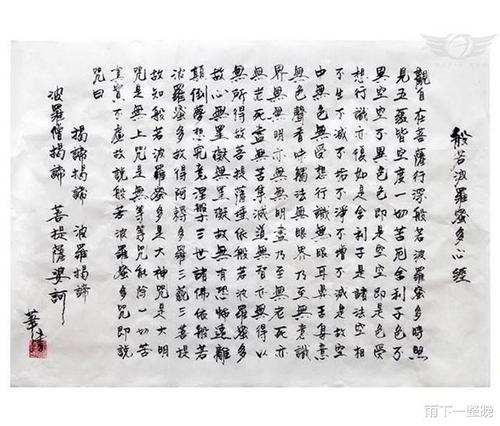 般若波羅蜜多心經
觀自在菩薩行深般若波羅蜜多時照
見五蘊皆空度一切苦厄舍利子色不
異空空不異色色即是空空即是色受
想行識亦復如是舍利子是諸法空相
不生不滅不垢不淨不增不減是故空
中無色無受想行識無眼耳鼻舌身意
無色聲香味觸法無眼界乃至無意識
界無無明亦無無明盡乃至無老死亦
無老死盡無苦集滅道無智亦無得以
無所得故菩提薩埵依般若波羅蜜多
故心無罣礙無罣礙故無有恐怖遠離
顛倒夢想究竟涅槃三世諸佛依般若
波羅蜜多故得阿耨多羅三藐三菩提
故知般若波羅蜜多是大神咒是大明
咒是無上咒是無等等咒能除一切苦
真實不虛故說般若波羅蜜多咒即說
咒曰
揭諦揭諦 波羅揭諦
波羅僧揭諦 菩提薩婆訶
雨下一整晚